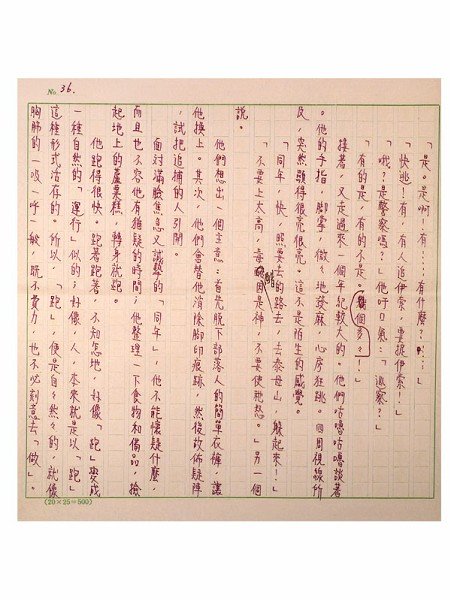 No. 36.
「是。是啊！有……有什麼？……」
「快逃！有，有人追伊索，要捉伊索！」
「哦？是警察嗎？」他吁口氣：「追察？」
「有的是，有的不是。個多！」
接著，又走過來一個年紀較大的。他們咕嚕咕嚕談著
。他的手指、腳掌，微々地發麻，心房狂跳。四周視線所
及，突然顯得很亮很亮。這不是陌生的感覺。
「同年，快，照要去的路去，去泰母山，躲起來！」
「不要上太高，每個是神，不要使祂愁。」另一個
說。
他們想出一個主意：首先脫下部落人的簡單衣褲，讓
他換上。其次，他們會替他清除腳印痕跡，然後故佈疑陣
，試把追捕的人引開。
面對滿臉焦急又誠摯的「同年」，他不能懷疑什麼，
而且也不容他有猶疑的時間；他整理一下食物和備品，撿
起地上的蘆粟糕，轉身就跑。
他跑得很快。跑著跑著，不知怎地，好像「跑」變成
一種自然的「運行」似的；好像，人，本來就是以「跑」
這種形式活存的。所以，「跑」，便是自々然々的，就像
胸肺的一吸一呼一般，既不費力，也不必刻意去「做」。
(20×25=500)